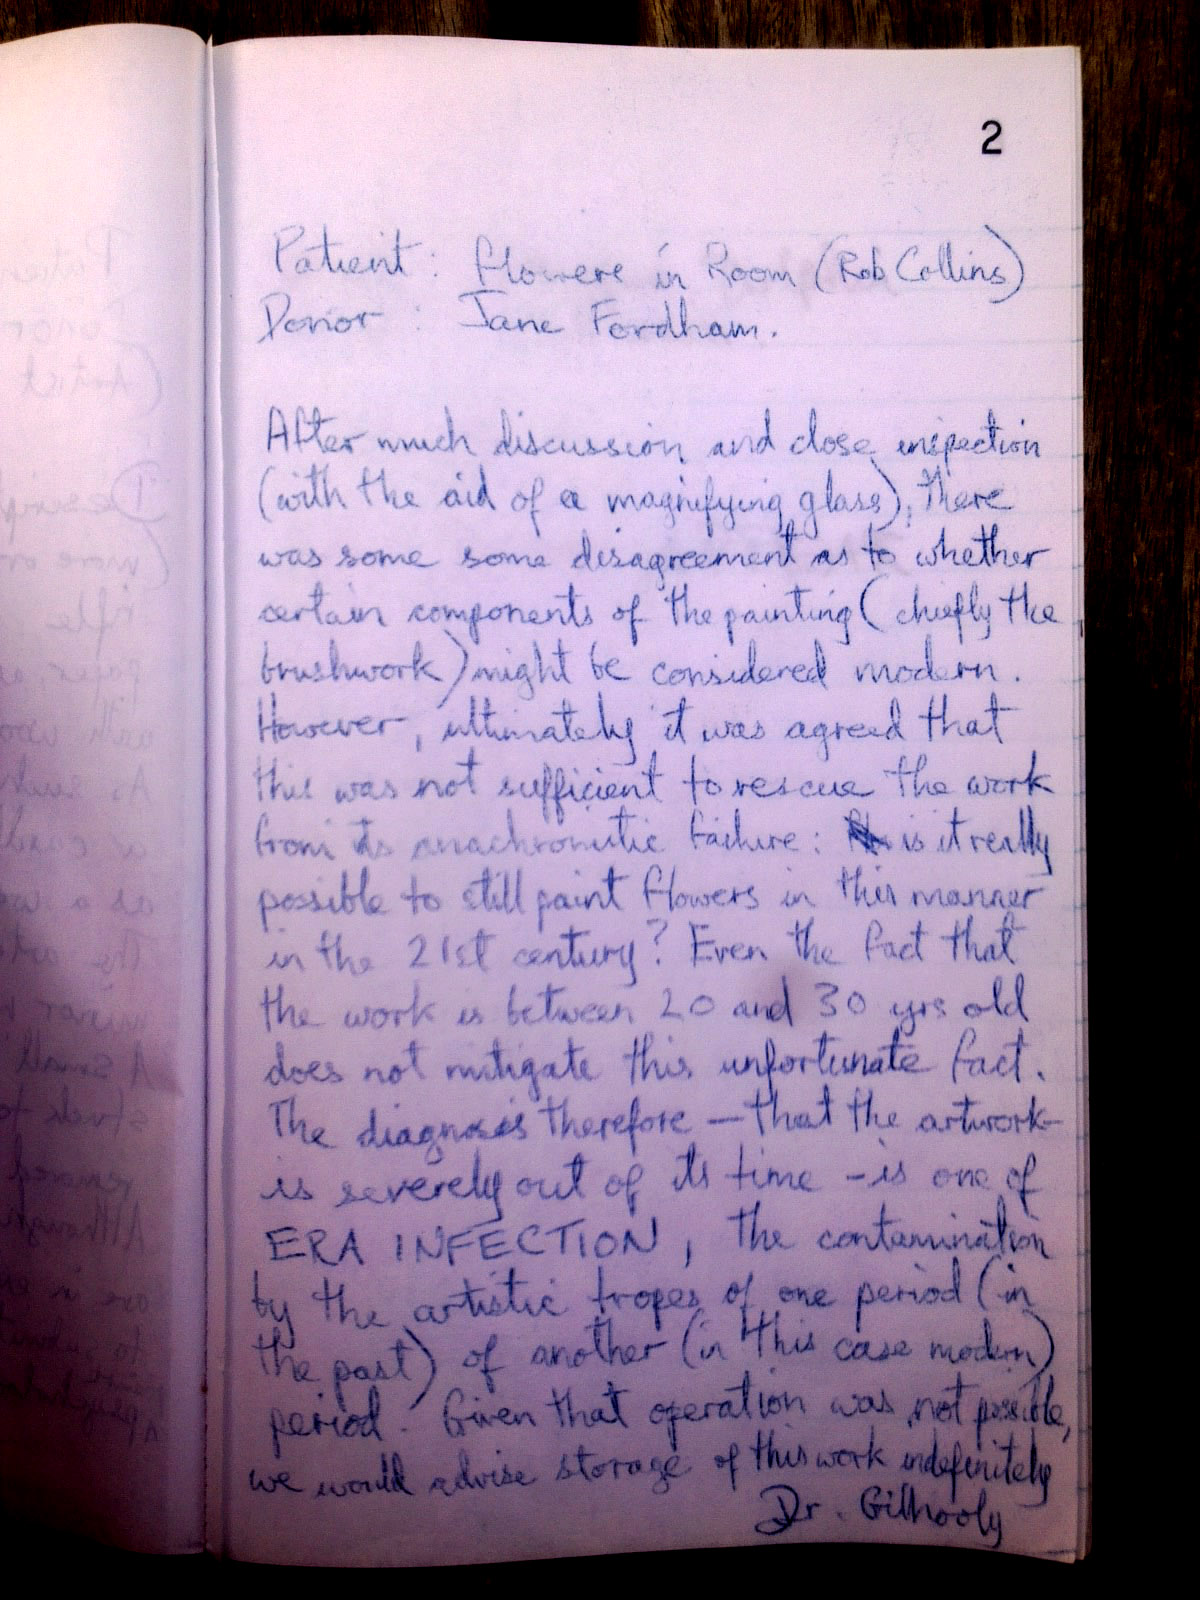 2
Patient : Flowers in Room (Rob Collins)
Donor : Jane Fordham.
After much discussion and close inspection
(with the aid of a magnifying glass), there
was some some disagreement as to whether
certain components of the painting (chiefly the
brushwork) might be considered modern.
However, ultimately it was agreed that
this was not sufficient to rescue the work
from its anachronistic failure : is it really
possible to still paint flowers in this manner
in the 21st century? Even the fact that
the work is between 20 and 30 yrs old
does not mitigate this unfortunate fact.
The diagnosis therefore – that the artwork –
is severely out of its time – is one of
ERA INFECTION, the contamination
by the artistic tropes of one period (in
the past) of another (in this case modern)
period. Given that operation was not possible,
we would advise storage of this work indefinitely
Dr. Gilhooly